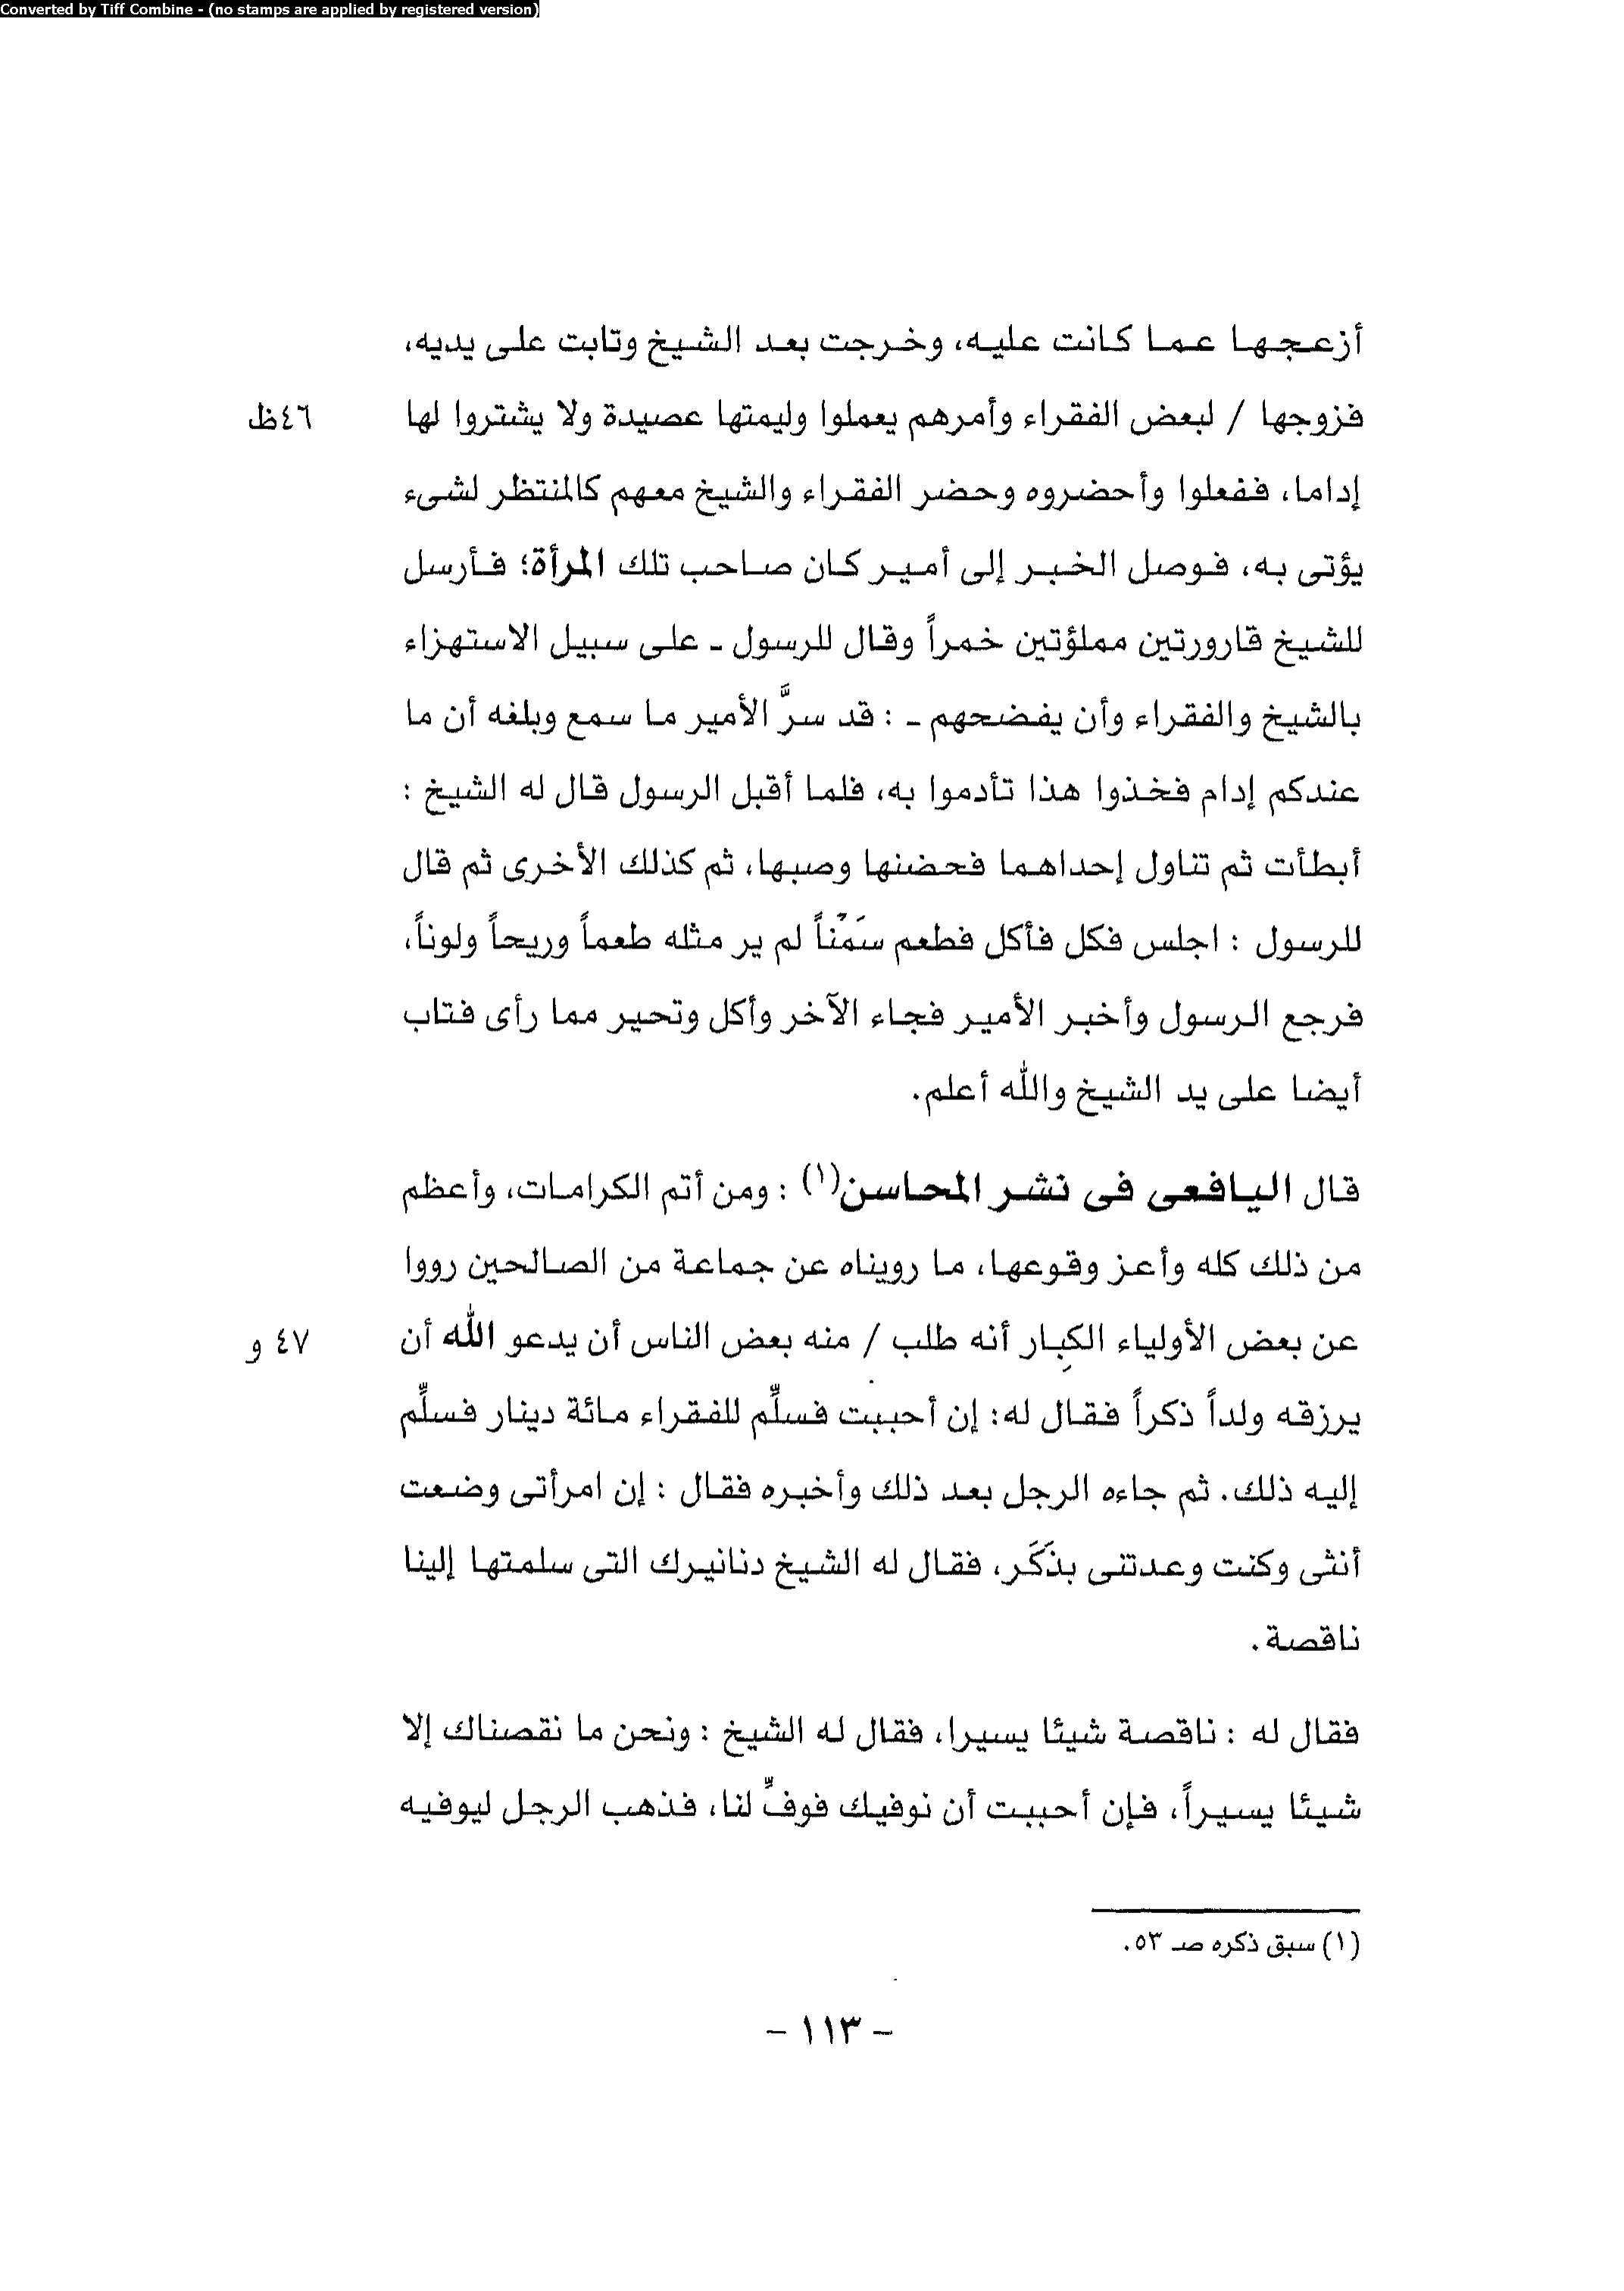 Converted by Tiff Combine - (no stamps are applied by registered version)
أزعجها عما كانت عليه، وخرجت بعد الشيخ وتابت على يديه،
فزوجها / لبعض الفقراء وأمرهم يعملوا وليمتها عصيدة ولا يشتروا لها
٤٦ظ
إداما، ففعلوا وأحضروه وحضر الفقراء والشيخ معهم كالمنتظر لشىء
يؤتى به، فوصل الخبر إلى أمير كان صاحب تلك المرأة؛ فأرسل
للشيخ قارورتين مملؤتين خمراً وقال للرسول ـ على سبيل الاستهزاء
بالشيخ والفقراء وأن يفضحهم ـ : قد سرَّ الأمير ما سمع وبلغه أن ما
عندكم إدام فخذوا هذا تأدموا به، فلما أقبل الرسول قال له الشيخ :
أبطأت ثم تناول إحداهما فحضنها وصبها، ثم كذلك الأخرى ثم قال
للرسول : اجلس فكل فأكل فطعم سَمْناً لم ير مثله طعماً وريحاً ولوناً،
فرجع الرسول وأخبر الأمير فجاء الآخر وأكل وتحير مما رأى فتاب
أيضا على يد الشيخ والله أعلم.
قال اليافعى فى نشر المحاسن(١) : ومن أتم الكرامات، وأعظم
من ذلك كله وأعز وقوعها، ما رويناه عن جماعة من الصالحين رووا
عن بعض الأولياء الكِبار أنه طلب / منه بعض الناس أن يدعو الله أن
٤٧ و
يرزقه ولداً ذكراً فقال له: إن أحببت فسلِّم للفقراء مائة دينار فسلِّم
إليه ذلك. ثم جاءه الرجل بعد ذلك وأخبره فقال : إن امرأتى وضعت
أنثى وكنت وعدتنى بذَكَر، فقال له الشيخ دنانيرك التى سلمتها إلينا
ناقصة.
فقال له : ناقصة شيئا يسيرا، فقال له الشيخ : ونحن ما نقصناك إلا
شيئا يسيراً، فإن أحببت أن نوفيك فوفِّ لنا، فذهب الرجل ليوفيه
(١) سبق ذكره صـ ٥٣.
- ١١٣ -